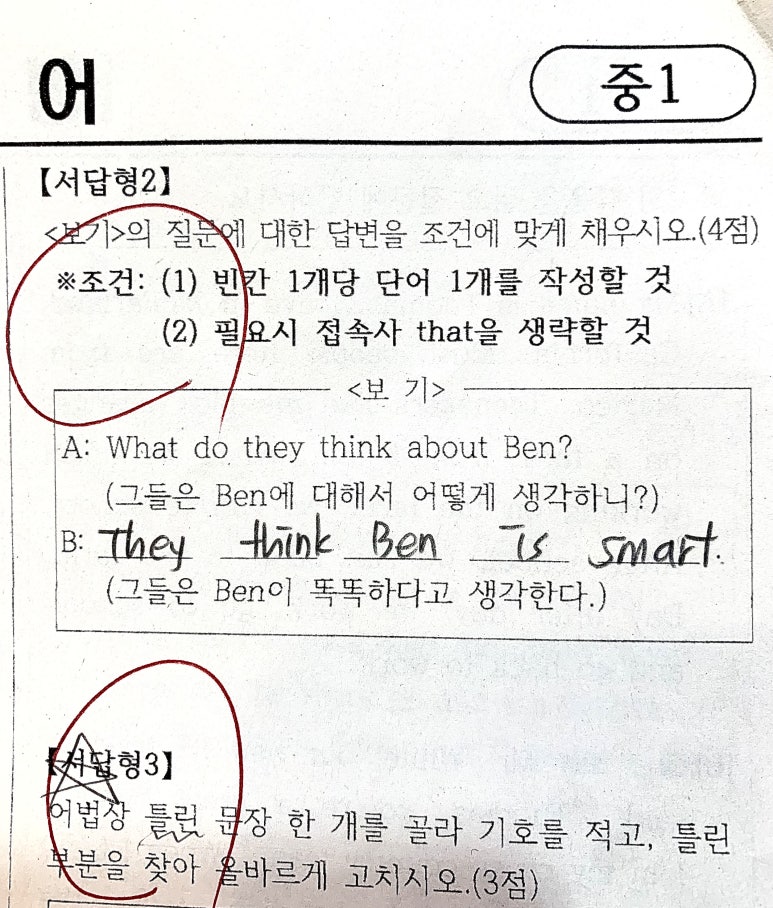 어
중1
【서답형2】
<보기>의 질문에 대한 답변을 조건에 맞게 채우시오.(4점)
※조건: (1) 빈칸 1개당 단어 1개를 작성할 것
(2) 필요시 접속사 that을 생략할 것
<보 기>
A: What do they think about Ben?
(그들은 Ben에 대해서 어떻게 생각하니?)
B: They think Ben is smart.
(그들은 Ben이 똑똑하다고 생각한다.)
【서답형3】
어법상 틀린 문장 한 개를 골라 기호를 적고, 틀린
부분을 찾아 올바르게 고치시오.(3점)